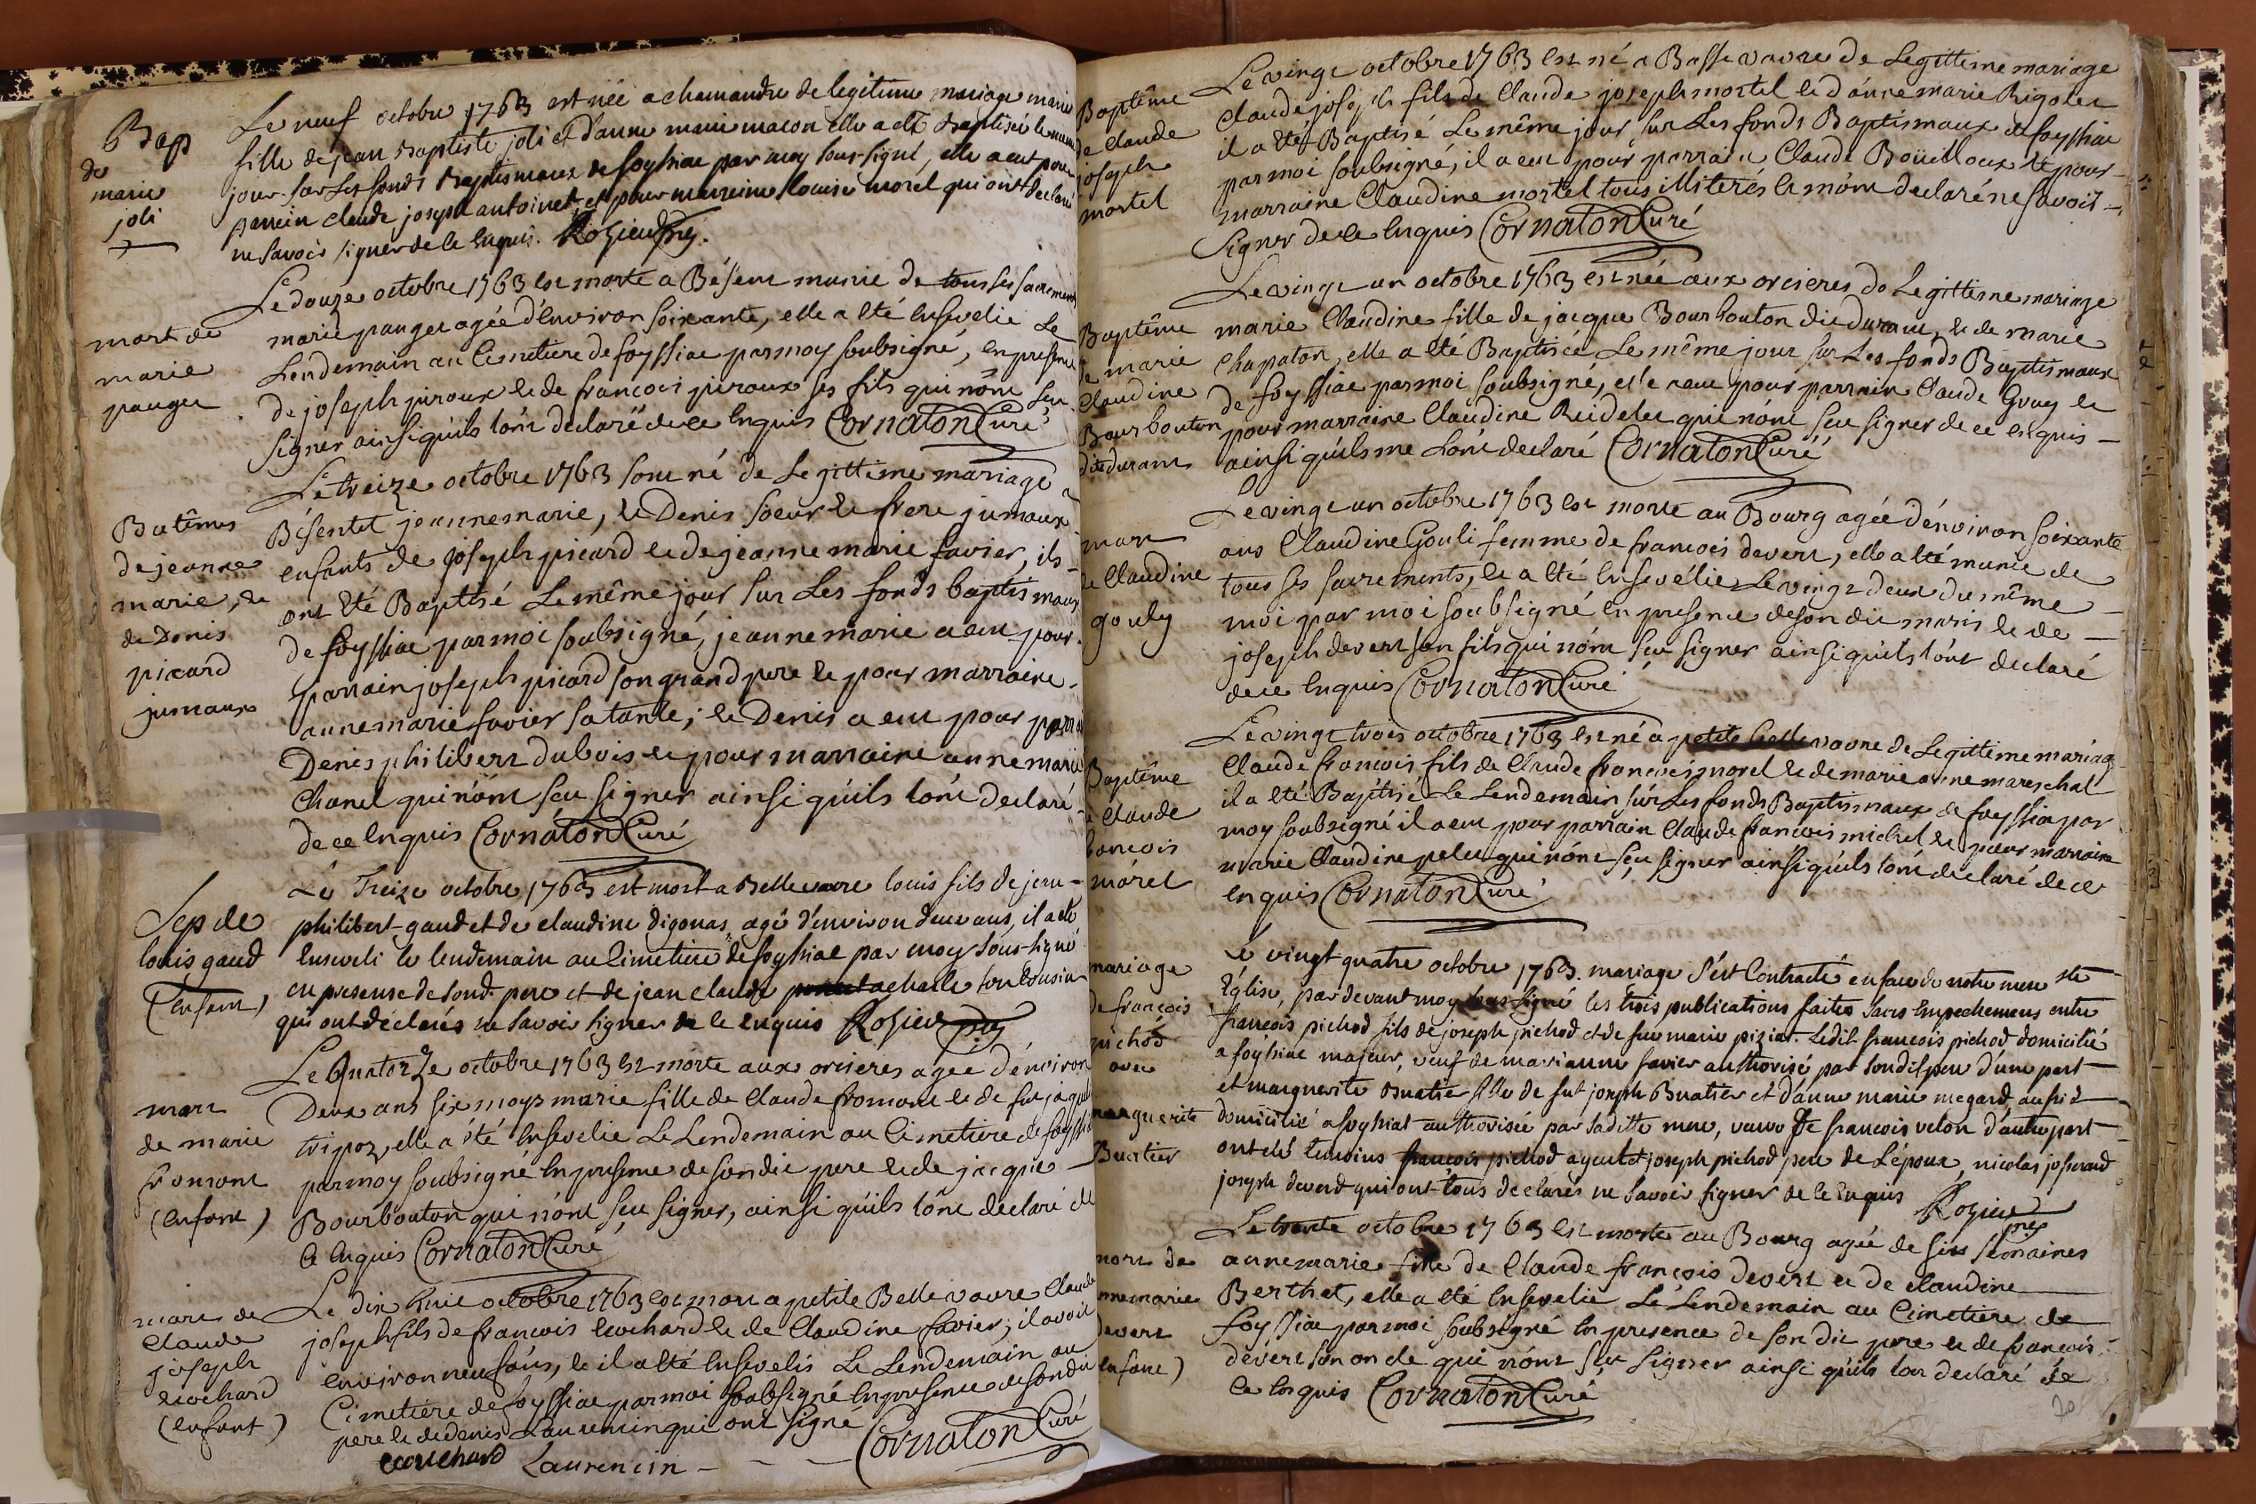 Bap
de
marie
joli
Le neuf octobre 1763 est née a chamandre de legitime mariage marie
fille de jean baptiste joli et d'anne marie macon elle a eté baptisée le meme
jour sur les fonds baptismaux de foyssiae par moy sous-signé, elle a eut pour
parrein claude joseph antoinet, et pour marreine louise morel qui ont declaré
ne savoir signer de ce enquis. Rozier
mort de
marie
pauget
Le douze octobre 1763 est morte a Bésent munie de tous ses sacrements
marie pauget agée d'environ soixante, elle a été ensevelie Le
Lendemain au Cimetiere de foyssiae par moy soubsigné, en presence
de joseph juroux et de francois juroux ses fils qui n'ont seu
signer ainsi qu'ils l'ont declaré de ce enquis Cornaton Curé
Batêmes
de jeanne
marie, et
de Denis
picard
jumaux
Le treize octobre 1763 sont né de Legittime mariage a
Bésentet jeanne marie, et Denis soeur et frere jumaux
enfants de joseph picard et de jeanne marie favier, ils
ont été Baptisé Le même jour sur Les fonds baptismaux
de foyssiae par moi soubsigné, jeanne marie a eu pour
parrain joseph picard son grand pere et pour marraine
anne marie favier sa tante; et Denis a eu pour parrain
Denis philibert dubois et pour marraine anne marie
Chanel qui n'ont seu signer ainsi qu'ils l'ont declaré
de ce enquis Cornaton Curé
Sep de
louis gaud
(enfant)
Le Treize octobre 1763 est mort a Bellevavre louis fils de jean
philibert gaud et de claudine digonas, agé d'environ deux ans, il a eté
enseveli le lendemain au Cimetiere de foyssiae par moy sous-signé
en presense de sond. pere et de jean claude
qui ont déclarés ne savoir signer de ce enquis Rozier
mort
de marie
fromont
(enfant)
Le Quatorze octobre 1763 est morte aux orcieres agée d'environ
Deux ans six moys marie fille de Claude fromont et de
tripoz, elle a été ensevelie Le Lendemain au Cimetiere de foyssiae
par moy soubsigné en presence de son dit pere et de jacque
Bourbouton qui n'ont seu signer, ainsi qu'ils l'ont declaré de
ce enquis Cornaton Curé
mort de
Claude
joseph
ecochard
(enfant)
Le dix huit octobre 1763 est mort a petite Belle vavre Claude
joseph fils de francois ecochard et de Claudine favier; il avoit
environ neuf ans, et il a été ensevelis Le Lendemain au
Cimetiere de foyssiae par moi soubsigné en presence de son dit
pere et de denis Laurencin qui ont signe Cornaton Curé
ecochard Laurencin
Baptême
de Claude
joseph
mortel
Le vingt octobre 1763 est né a Basse vavre de Legittime mariage
Claude joseph fils de Claude joseph mortel et d'anne marie Rigolet
il a été Baptisé Le même jour sur Les fonds Baptismaux de foyssiae
par moi soubsigné, il a eu pour parrain Claude Boüilloux et pour
marraine Claudine mortel tous illiterés et m'ont declaré ne savoir
signer de ce enquis Cornaton Curé
Baptême
de marie
Claudine
Bourbouton
dit durant
Le vingt un octobre 1763 est née aux orcieres de Legittime mariage
marie Claudine fille de jacque Bourbouton dit Durant, et de marie
Chapaton, elle a été Baptisée Le même jour sur Les fonds Baptismaux
de foyssiae par moi soubsigné, elle a eu pour parrain Claude Gvay et
pour marraine Claudine Reidelet qui n'ont seu signer de ce enquis
ainsi qu'ils me L'ont declaré Cornaton Curé
mort
de Claudine
gouly
Le vingt un octobre 1763 est morte au Bourg agée d'environ soixante
ans Claudine Gouli femme de francois devert, elle a été munie de
tous ses sacrements, et a été ensevélie Le vingt deux du même
moi par moi soubsigné en presence de son dit maris et de
joseph devert son fils qui n'ont seu signer ainsi qu'ils l'ont declaré
de ce enquis Cornaton Curé
Baptême
de Claude
francois
morel
Le vingt trois octobre 1763 est né a petite belle vavre de Legittime mariage
Claude francois fils de Claude francois morel et de marie anne mareschal
il a été Baptisé Le Lendemain sur Les fonds Baptismaux de foyssiae par
moy soubsigné il a eu pour parrain Claude francois michel et pour marraine
marie Claudine pelet qui n'ont seu signer ainsi qu'ils l'ont declaré de ce
enquis Cornaton Curé
mariage
de françois
pichod
avec
marguerite
Buatier
Le vingt quatre octobre 1763. mariage s'est Contracté en face de notre mere ste
Eglise, par devant moy sous signé les trois publications faites sans empechemens entre
francois pichod fils de joseph pichod et de feu marie piziat. Ledit francois pichod domicilié
a foyssiae majeur, veuf de marianne favier authorisé par sondit pere d'une part
et marguerite Buatier fille de fut joseph Buatier et d'anne marie megard, aussi
domicilié a foyssiat authorisée par saditte mere, veuve de francois velon d'autre part
ont été temoins francois pichod ayeul et joseph pichod pere de L'époux, nicolas josserand
joseph devert qui ont tous declarés ne savoir signer de ce enquis
Rozier
mort de
annemarie
devert
enfant)
Le trente octobre 1763 est morte au Bourg agée de six semaines
anne marie fille de Claude françois devert et de claudine
Berthet, elle a été ensevelie Le Lendemain au Cimetiere de
foyssiae par moi soubsigné en presence de son dit pere et de francois
devert son oncle qui n'ont seu signer ainsi qu'ils l'on declaré de
ce enquis Cornaton Curé
70